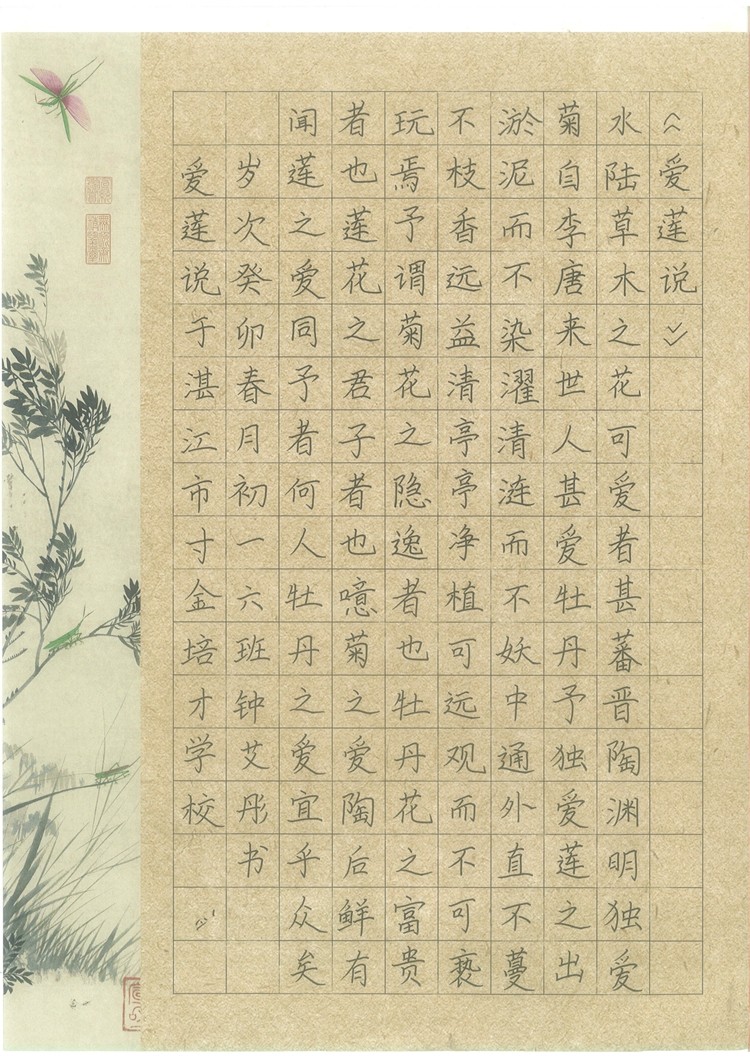 《爱莲说》
水陆草木之花可爱者甚蕃晋陶渊明独爱
菊自李唐来世人甚爱牡丹予独爱莲之出
淤泥而不染濯清涟而不妖中通外直不蔓
不枝香远益清亭亭净植可远观而不可亵
玩焉予谓菊花之隐逸者也牡丹花之富贵
者也莲花之君子者也噫菊之爱陶后鲜有
闻莲之爱同予者何人牡丹之爱宜乎众矣
岁次癸卯春月初一六班钟艾彤书
爱莲说于湛江市寸金培才学校